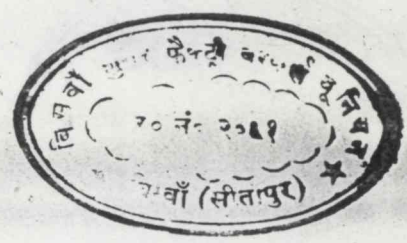 बिसवाँ शुगर फैक्ट्री वर्कर्स यूनियन
र० नं० २०६१
बिसवाँ (सीतापुर)